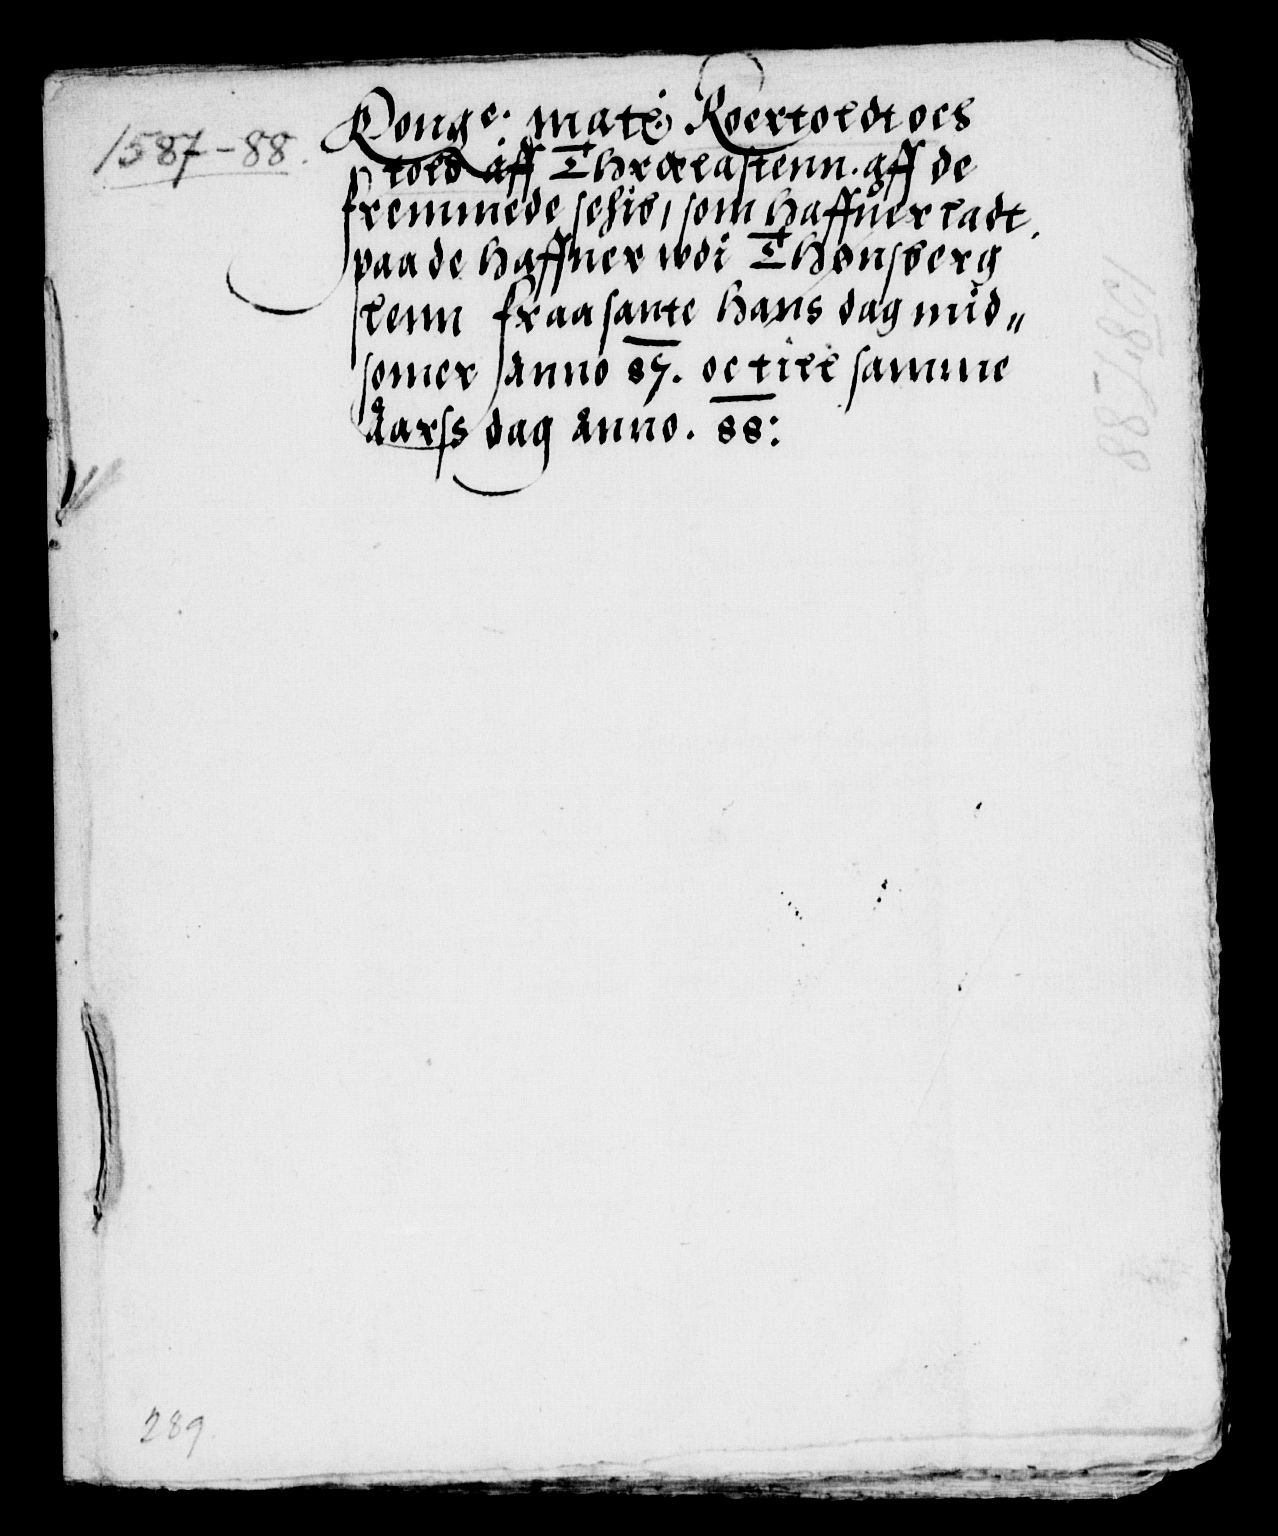 1587-88.
Konge: matz Roertoldt och
told aff Thrælastenn. aff de
fremmede schib, som haffuer ladt
paa de haffner wdi Thønsberg
lenn fraa sante Hans dag mid„
somer anno 87. oc till samme
Aarss dag Anno. 88:
289.